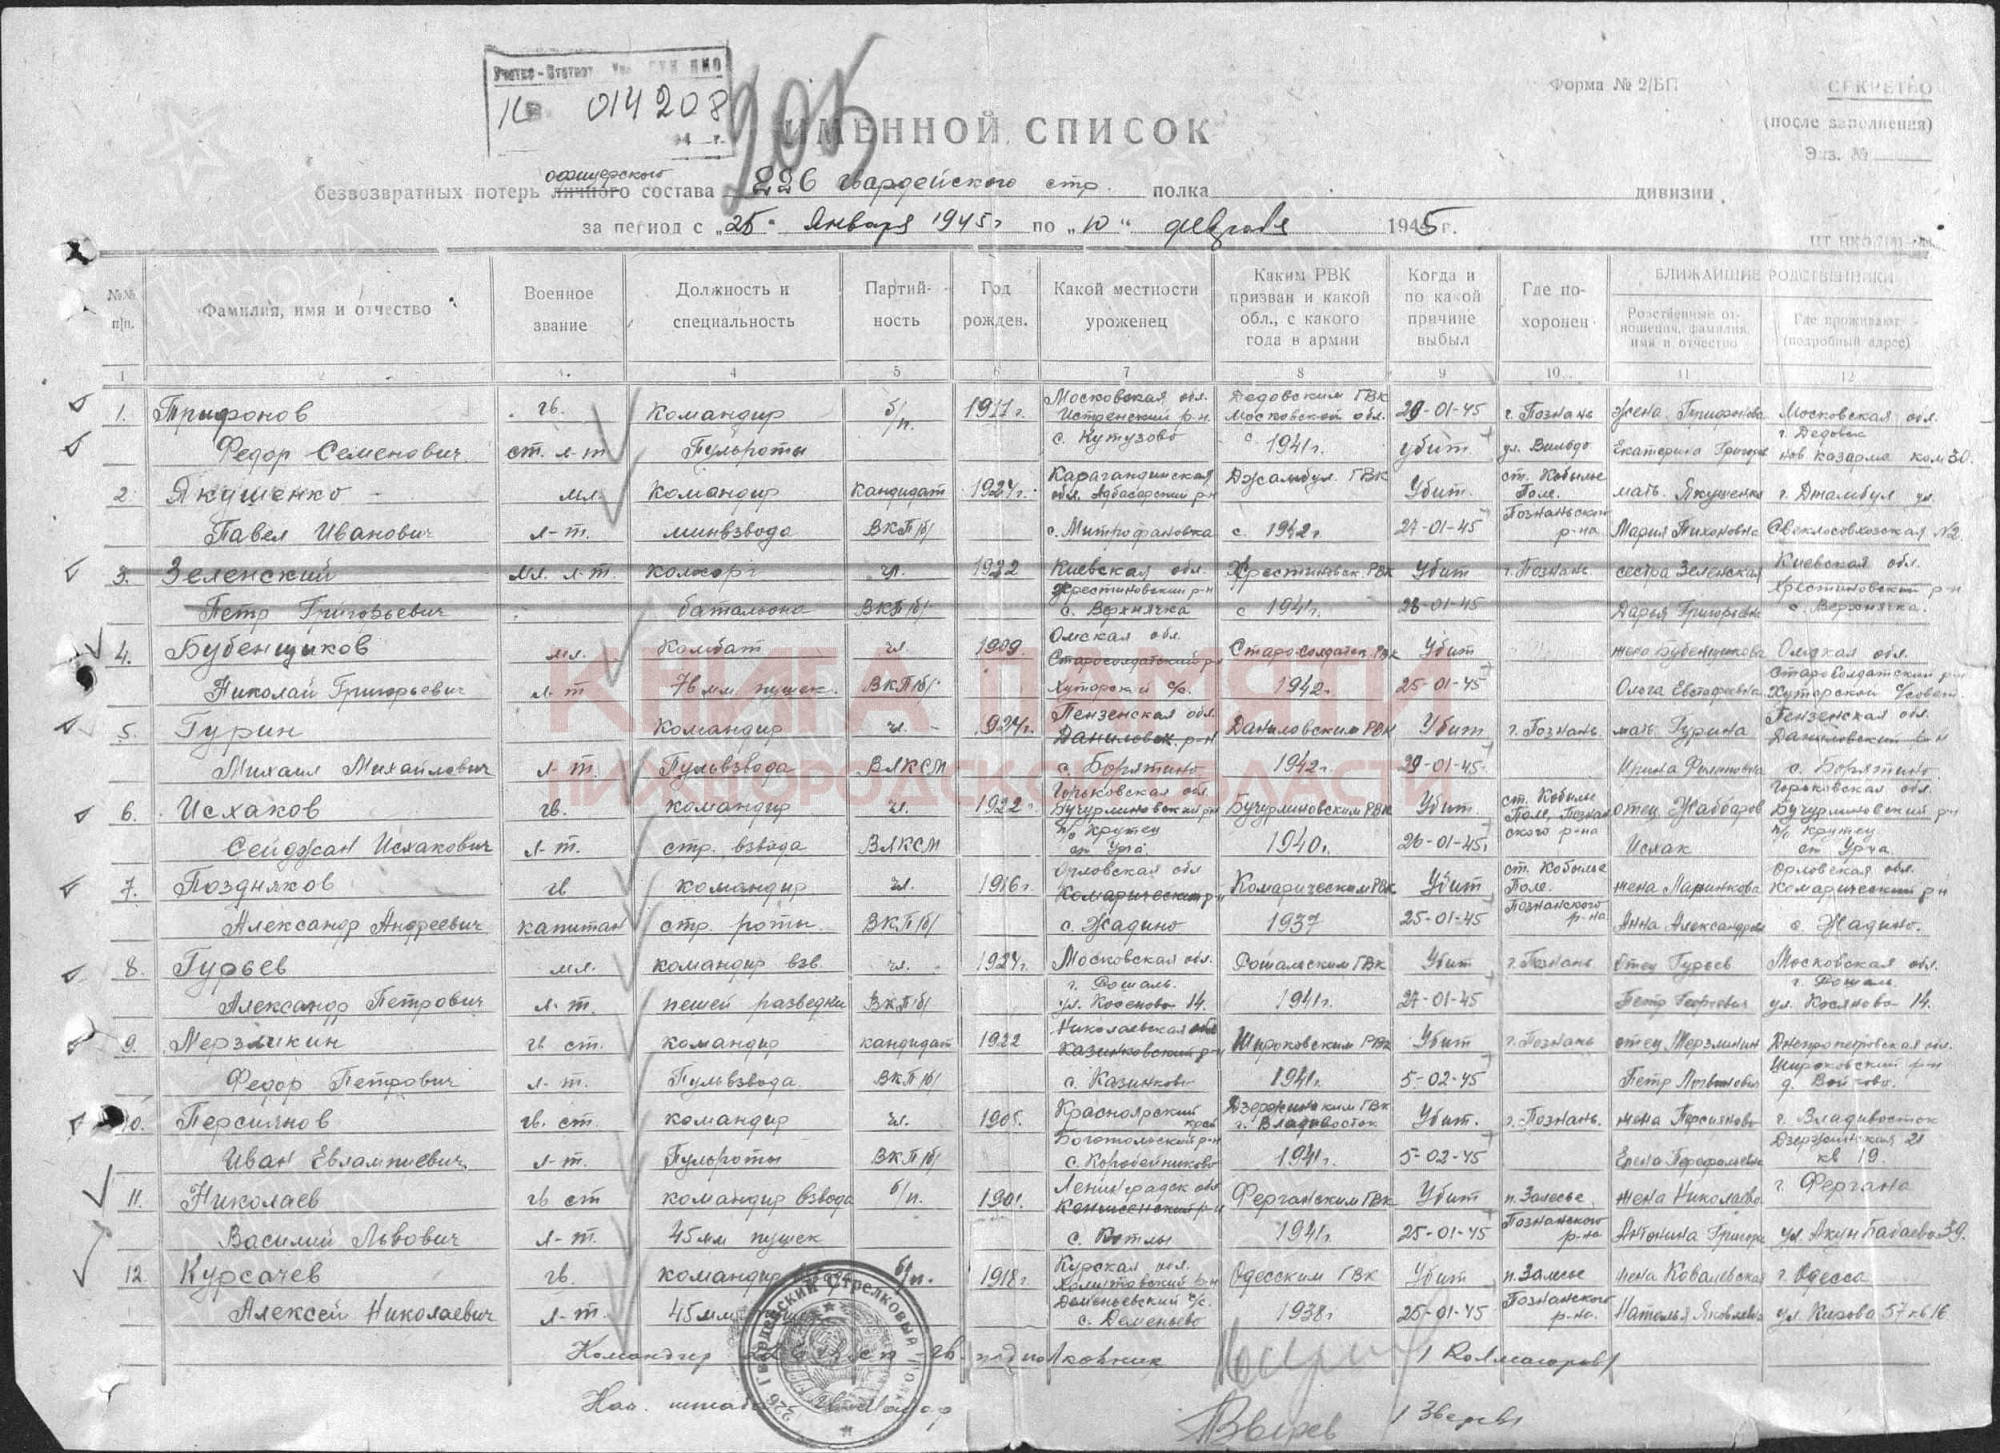 Форма № 2/БП
СЕКРЕТНО
(после заполнения)
Экз. №
014208
905
ИМЕННОЙ СПИСОК
безвозвратных потерь личного офицерского состава 226 гвардейского стр. полка дивизии
за период с „25“ января 1945г по „10“ февраля 1945 г.
№№ п/п.
Фамилия, имя и отчество
Военное звание
Должность и специальность
Партийность
Год рожден.
Какой местности уроженец
Каким РВК призван и какой обл., с какого года в армии
Когда и по какой причине выбыл
Где похоронен
БЛИЖАЙШИЕ РОДСТВЕННИКИ
Родственные отношения, фамилия, имя и отчество
Где проживают (подробный адрес)
1 2 3 4 5 6 7 8 9 10 11 12
1. Трифонов гв. Командир б/п. 1911г. Московская обл. Истренский р-н. Дедовским ГВК Московской обл. 29-01-45 г. Познань жена Трифонова Московская обл. г. Дедовск
Федор Семенович ст. л-т Пульроты с. Кутузово с 1941г. убит Екатерина казарма ком 30.
2 Якушенко мл. Командир кандидат 1924г. Карагандинская обл. Джамбул. ГВК Убит. ст. Кобылье Поле. мать. Якушенко г. Джамбул ул.
Павел Иванович л-т. минвзвода ВКП/б/ с. Митрофановка с. 1942г. 27-01-45 Познаньского р-на Мария Тихоновна Свеклосовхозская №2
3. Зеленский мл. л-т. Комсорг чл. 1922 Киевская обл. Хрестиновск. РВК Убит г. Познань сестра Зеленская Киевская обл.
Петр Григорьевич батальона ВКП/б/ Хрестиновский р-н с. Верхнячка с 1941г. 28-01-45 Дарья Григорьевна Хрестиновский р-н с. Верхнячка.
4. Бубенщиков мл. Комбат чл. 1909. Омская обл. Старосолдатский р-н Старосолдатск. РВК Убит жена Бубенщикова Омская обл.
Николай Григорьевич л-т 76 мм. пушек. ВКП/б/ Хуторской с/с. 1942г. 25-01-45 Ольга Старосолдатский р-н Хуторской с/совет.
5. Гурин Командир чл. 924г. Пензенская обл. Даниловск. р-н Даниловским РВК Убит г. Познань. мать Гурина Пензенская обл. Даниловский р-н
Михаил Михайлович л-т. Пульвзвода ВЛКСМ с. Борятино 1942г. 29-01-45 Ирина с. Борятино.
6. Исхаков гв. командир чл. 1922г. Горьковская обл. Бучурминовский р-н Бучурминовским РВК Убит. ст. Кобылье Поле, Познанского р-на отец Жаббаров Горьковская обл. Бучурминовский р-н
Сейджан Исхакович л-т. стр. взвода ВЛКСМ п/о Крутец ст Урга. 1940г. 26-01-45г Исхак п/о Крутец ст Урга.
7. Поздняков гв командир чл. 1916г. Орловская обл Комарический р-н Комарическим РВК Убит ст. Кобылье Поле. жена Ларинкова Орловская обл. Комарический р-н
Александр Андреевич капитан стр. роты ВКП/б/ с. Жадино 1937 25-01-45 Познанского р-на Анна Александров с. Жадино.
8. Гурьев мл. командир взв. чл. 1924г. Московская обл. г. Рошаль. Рошальским ГВК Убит г. Познань отец Гурьев Московская обл. г. Рошаль
Александр Петрович л-т. пешей разведки ВКП/б/ ул. Косяново 14. 1941г. 27-01-45 Петр Георгиевич ул. Косяново 14.
9. Мерзликин гв ст. командир кандидат 1922 Николаевская обл Казинковский р-н Широковским РВК Убит г. Познань отец Мерзликин Днепропетровская обл. Широковский р-н
Федор Петрович л-т. Пульвзвода ВКП/б/ с. Казинково 1941г. 5-02-45 Петр
10. Персиянов гв. ст. командир чл. 1905. Красноярский край Дзержинским ГВК г. Владивосток Убит. г. Познань. жена Персиянова г. Владивосток
Иван Евлампиевич л-т. Пульроты ВКП/б/ Боготольский р-н с. Коробейниково 1941г. 5-02-45 Елена Дзержинская 21 кв 19.
11. Николаев гв ст командир взвода б/п. 1901. Ленинградск обл Ферганским ГВК Убит п. Залесье жена Николаева г. Фергана
Василий Львович л-т. 45мм пушек с. Вотлы 1941г. 25-01-45 Познанского р-на Антонина Григорь ул. Акун Бабаева 39.
12 Курсачев гв. командир б/п. 1918г. Курская обл. Одесским ГВК Убит п. Залесье жена Ковалевская г. Одесса
Алексей Николаевич л-т. 45мм Деменьевский с/с. с. Деменьево 1938г 25-01-45 Познанского р-на. Наталья Яковлевна ул. Кирова 57 кв 16
Командир гв. подполковник / Колмагоров /
Нач. штаба гв. майор / Зверев /
226 Гвардейский Стрелковый Полк
КНИГА ПАМЯТИ
НИЖЕГОРОДСКОЙ ОБЛАСТИ
ПАМЯТЬ НАРОДА